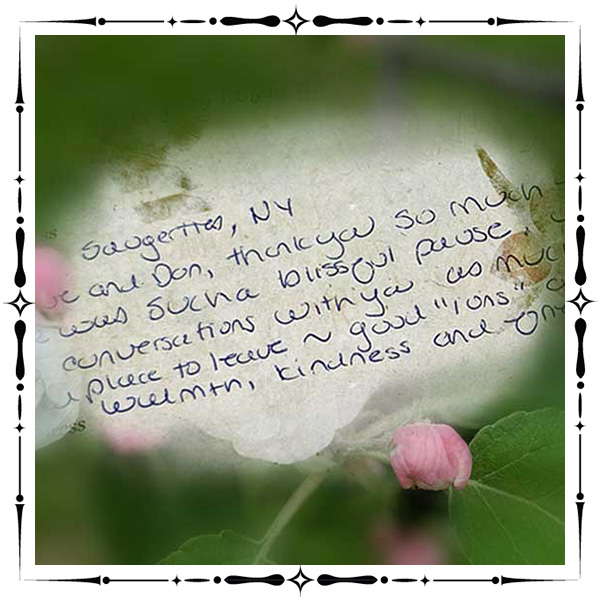 Saugerties, NY
and Don, thank you so much
was such a blissful pause.
conversations with you as much
place to leave ~ good "ions"
warmth, kindness and